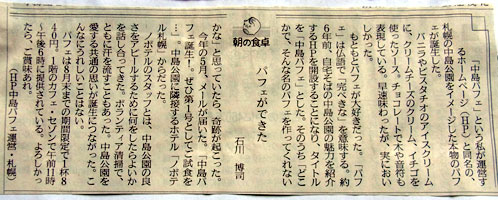 朝の食卓
パフェができた
石川 博司
「中島パフェ」という私が運営す
るホームページ(HP)と同名の、
札幌の中島公園をイメージした本物のパフ
ェが誕生した。
バニラやピスタチオのアイスクリーム
に、クリームチーズのクリーム、イチゴを
使ったソース。チョコレートで木や音符も
表現している。早速味わったが、実におい
しかった。
もともとパフェが大好きだった。「パフ
ェ」は仏語で「完ぺきな」を意味する。約
6年前、自宅そばの中島公園の魅力を紹介
するHPを開設することになり、タイトル
を「中島パフェ」とした。そのうち「どこ
かで、そんな名のパフェを作ってくれない
かな」と思っていたら、奇跡が起こった。
今年の5月、メールが届いた。「中島パ
フェ誕生!。ぜひ第1号としてご試食を
…」。中島公園に隣接するホテル「ノボテ
ル札幌」からだった。
ノボテルのスタッフとは、中島公園の良
さをアピールするために何をしたらよいか
を話し合ってきた。ボランティア清掃で、
ともに汗を流すこともあった。中島公園を
愛する共通の思いが誕生につながった。こ
んなにうれしいことはない。
パフェは8月末までの期間限定で1杯8
40円。1階のカフェ・セゾンで午前11時
~午後6時に提供されている。よろしかっ
たら、ご賞味あれ。
(HP中島パフェ運営・札幌)